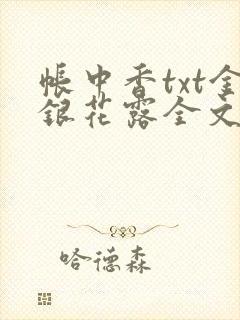 帐中香txt金
银花露全文
哈德森